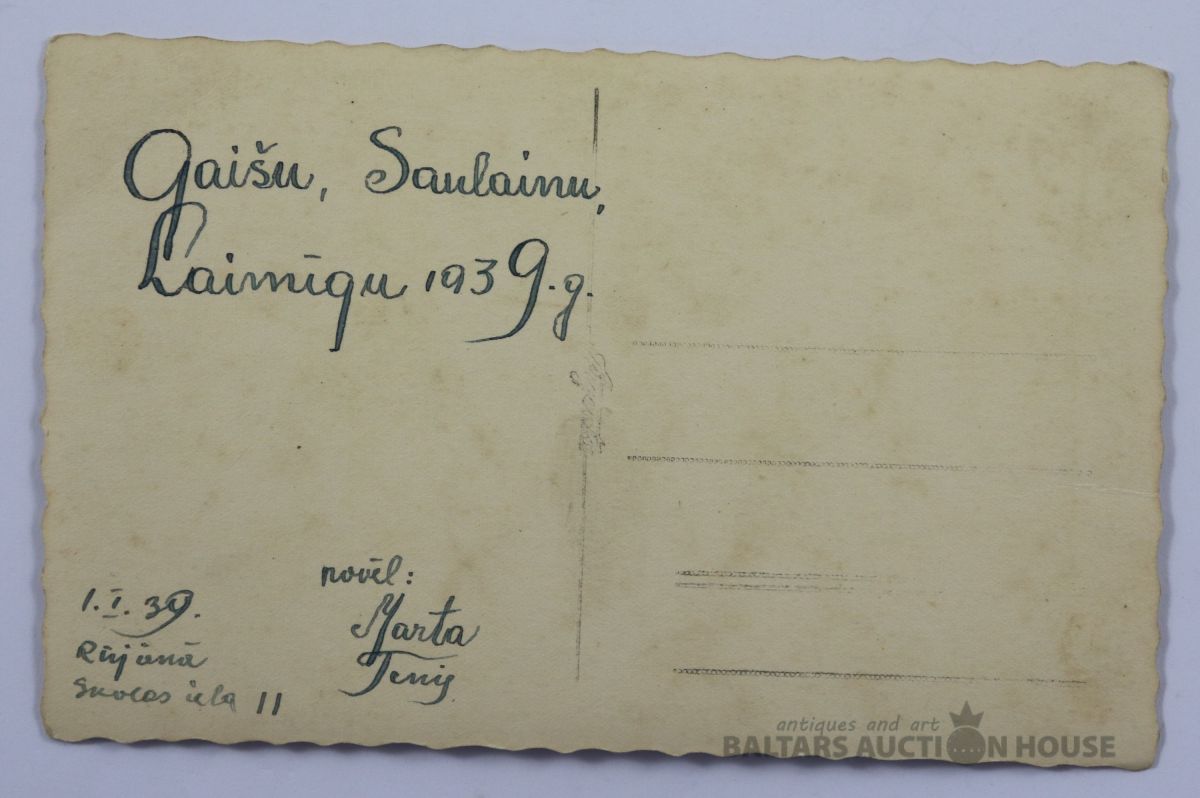 Gaišu, Saulainu,
Laimīgu 1939.g.
novēl:
Marta
1.I.39.
Rūjānā
Skolas iela 11
antiques and art
BALTARS AUCTION HOUSE